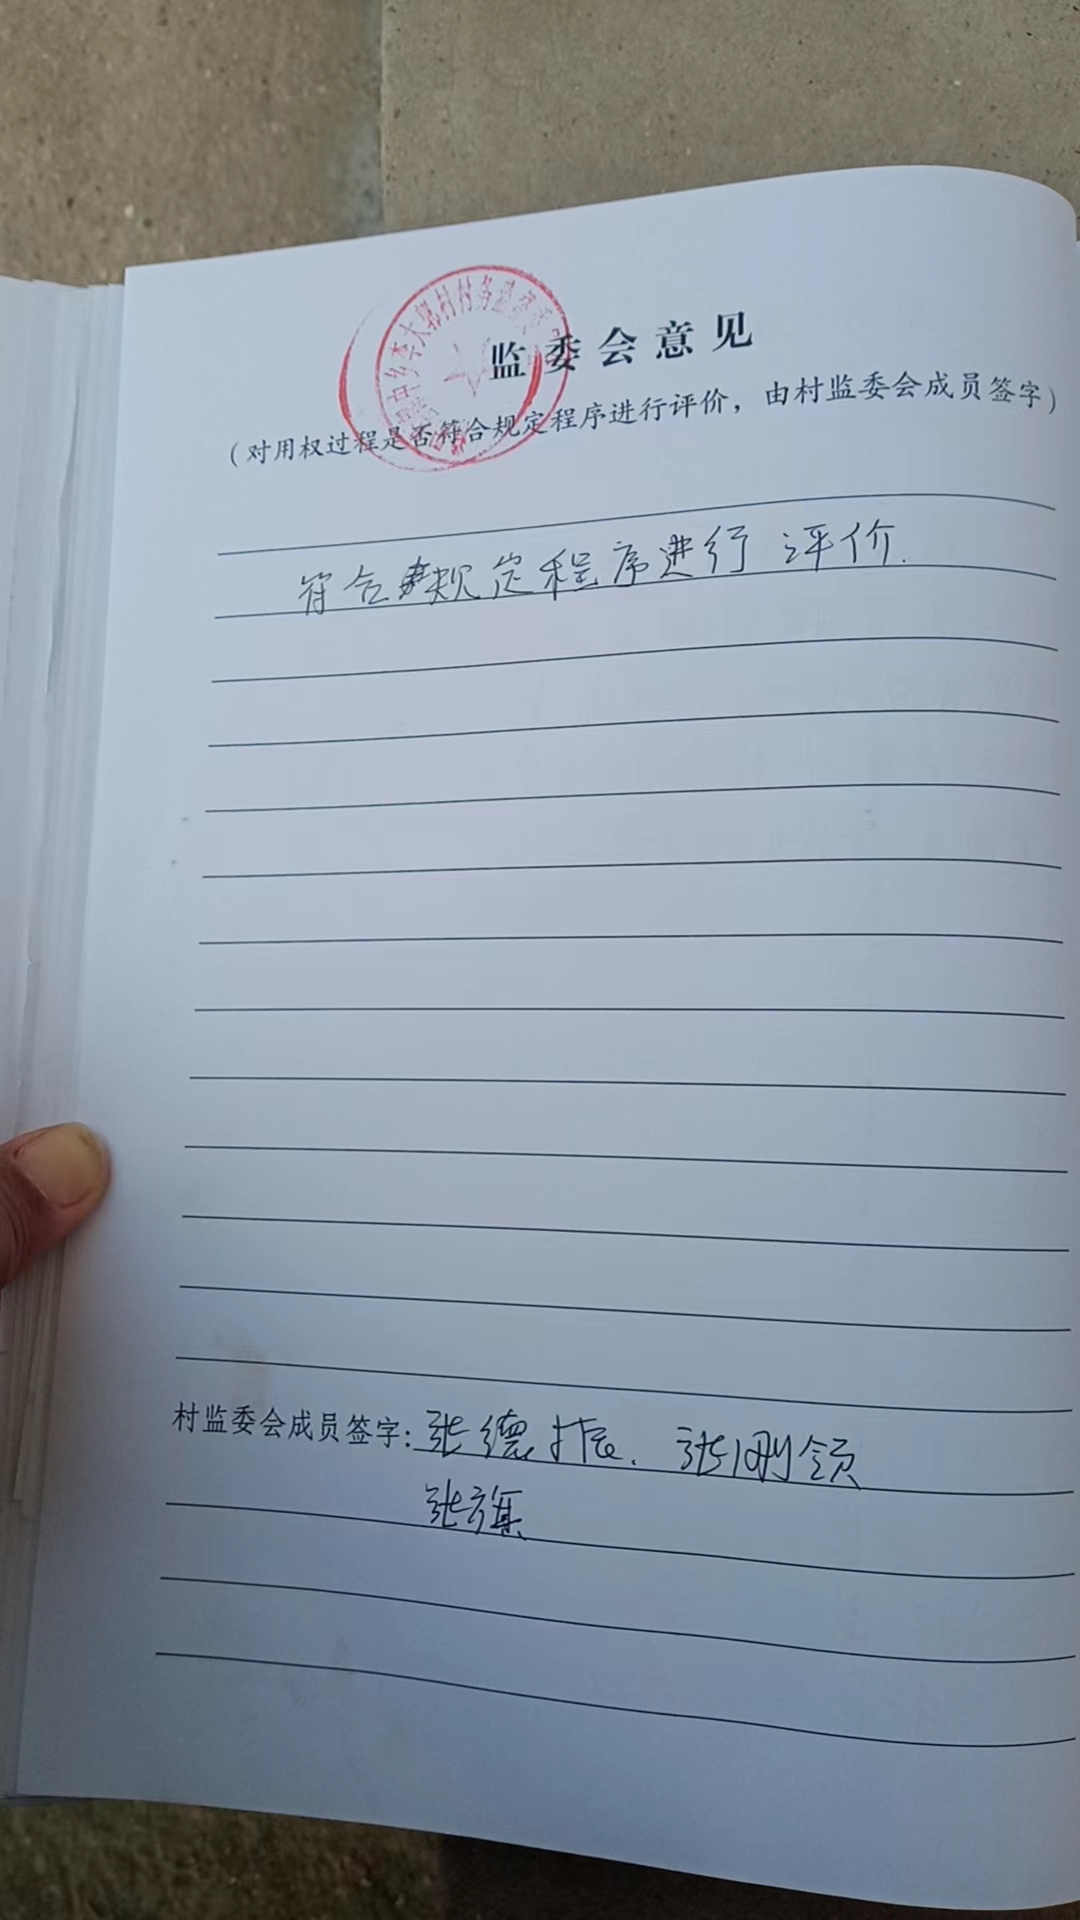 李大郭村村务监督委
监委会意见
（对用权过程是否符合规定程序进行评价，由村监委会成员签字）
符合规定程序进行评价.
村监委会成员签字:张德振. 张刚领
张旗